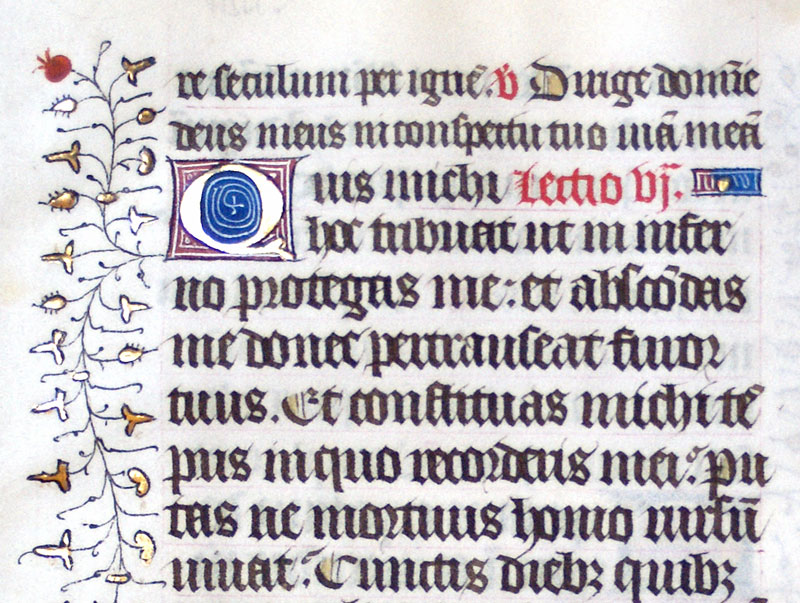 re seculum per ignē. v̄ Dirige domīe
deus meus in conspectu tuo uiā meā
Quis michi Lectio vj.
hoc tribuat ut in infer
no protegas me: et abscōdas
me donec pertranseat furor
tuus. Et constituas michi tē
pus in quo recorderis mei? Pu
tas ne mortuus homo rursū
uiuat? Cunctis dieb; quib;